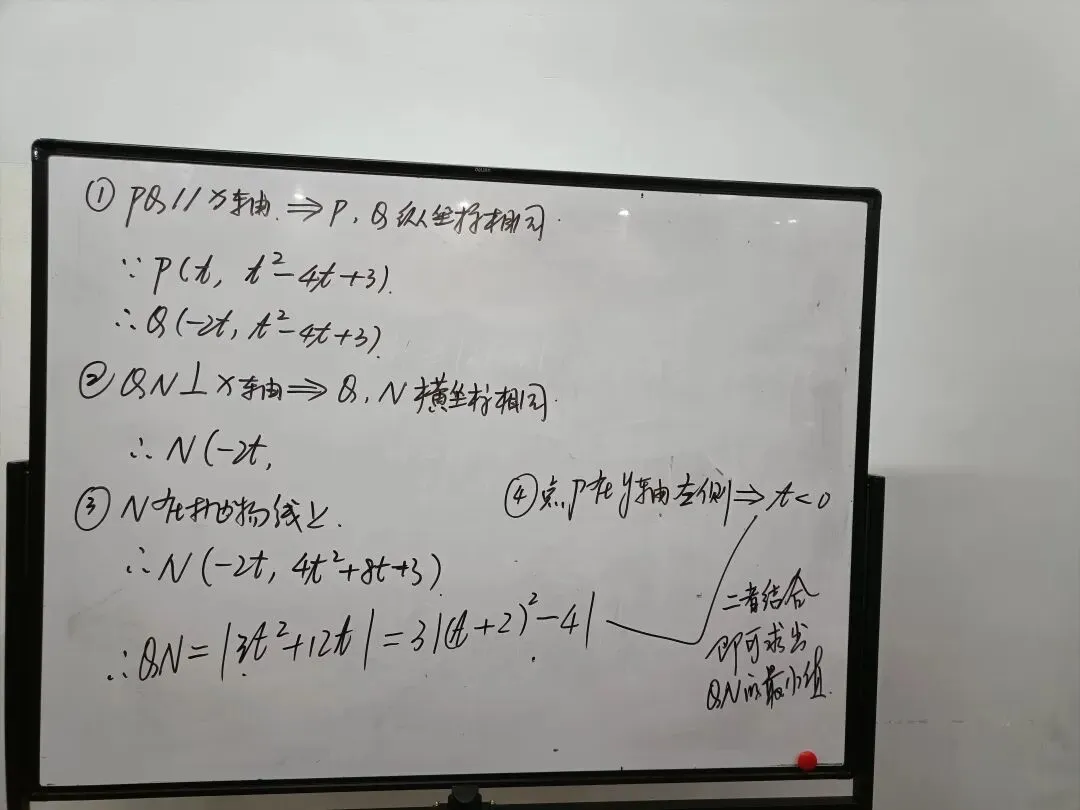 ① PQ∥x轴 ⇒ P、Q纵坐标相同.
∵ P(t, t²-4t+3).
∴ Q(-2t, t²-4t+3).
② QN⊥x轴 ⇒ Q、N横坐标相同.
∴ N(-2t,
③ N在抛物线上.
∴ N(-2t, 4t²+8t+3).
∴ QN=|3t²+12t|=3|(t+2)²-4|
④ 点P在y轴左侧 ⇒ t<0
二者结合
即可求出
QN的最小值.